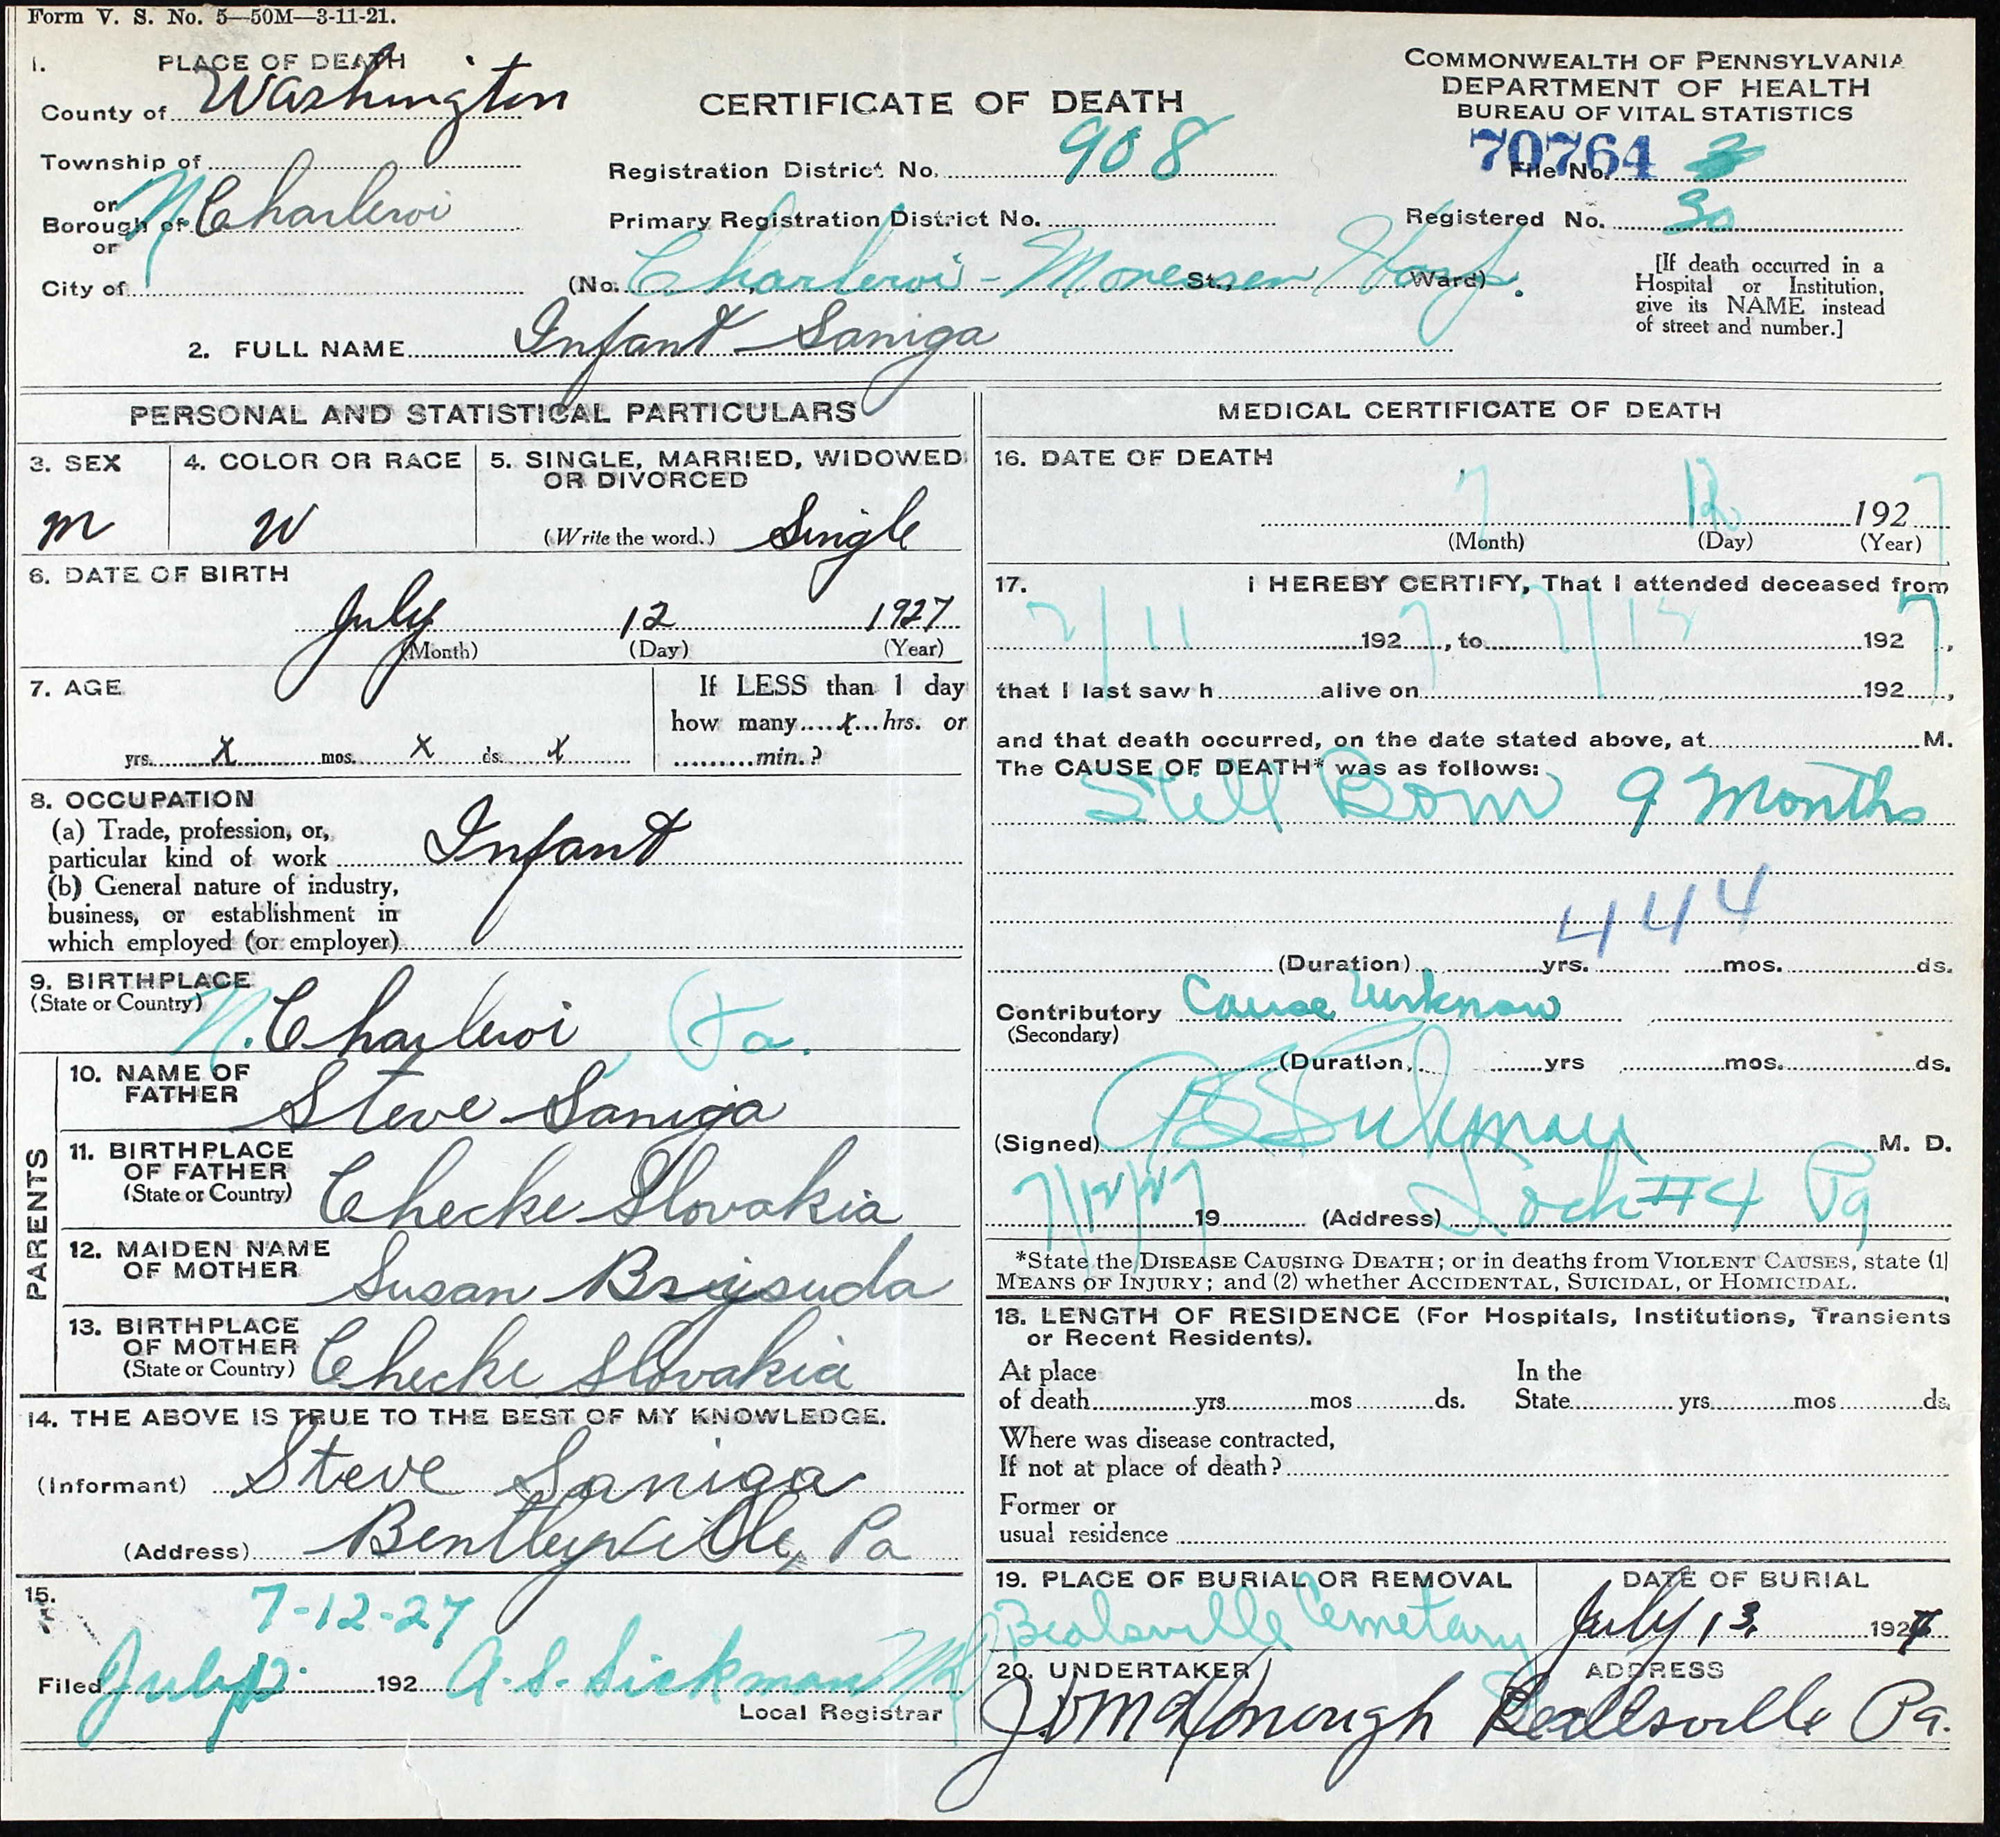 Form V. S. No. 5—50M—3-11-21.
1. PLACE OF DEATH
County of Washington
Township of
or
Borough of N Charleroi
or
City of
CERTIFICATE OF DEATH
Registration District No. 908
Primary Registration District No.
(No. Charleroi - Monessen Hosp. St., Ward)
COMMONWEALTH OF PENNSYLVANIA
DEPARTMENT OF HEALTH
BUREAU OF VITAL STATISTICS
70764
File No.
Registered No. 30
[If death occurred in a
Hospital or Institution,
give its NAME instead
of street and number.]
2. FULL NAME Infant Saniga
PERSONAL AND STATISTICAL PARTICULARS
3. SEX
m
4. COLOR OR RACE
W
5. SINGLE, MARRIED, WIDOWED
OR DIVORCED
(Write the word.) Single
6. DATE OF BIRTH
July 12 1927
(Month) (Day) (Year)
7. AGE
yrs. x mos. x ds. x
If LESS than 1 day
how many x hrs. or
min.?
8. OCCUPATION
(a) Trade, profession, or,
particular kind of work Infant
(b) General nature of industry,
business, or establishment in
which employed (or employer)
9. BIRTHPLACE
(State or Country)
N. Charleroi, Pa.
PARENTS
10. NAME OF
FATHER Steve Saniga
11. BIRTHPLACE
OF FATHER
(State or Country) Checke Slovakia
12. MAIDEN NAME
OF MOTHER Susan
13. BIRTHPLACE
OF MOTHER
(State or Country) Checke Slovakia
14. THE ABOVE IS TRUE TO THE BEST OF MY KNOWLEDGE.
(Informant) Steve Saniga
(Address) Bentleyville, Pa
15.
7-12-27
Filed July 12 192 A. S. Sickman MD
Local Registrar
MEDICAL CERTIFICATE OF DEATH
16. DATE OF DEATH
7 12 1927
(Month) (Day) (Year)
17. I HEREBY CERTIFY, That I attended deceased from
7/11 1927, to 7/12 1927,
that I last saw h alive on 192 ,
and that death occurred, on the date stated above, at M.
The CAUSE OF DEATH* was as follows:
Still Born 9 Months
444
(Duration) yrs. mos. ds.
Contributory Cause Unknown
(Secondary)
(Duration, yrs mos. ds.
(Signed) Sickman M. D.
7/12/27 19 (Address) Lock #4 Pa
*State the DISEASE CAUSING DEATH; or in deaths from VIOLENT CAUSES, state (1)
MEANS OF INJURY; and (2) whether ACCIDENTAL, SUICIDAL, or HOMICIDAL.
18. LENGTH OF RESIDENCE (For Hospitals, Institutions, Transients
or Recent Residents).
At place
of death yrs. mos ds.
In the
State yrs. mos ds.
Where was disease contracted,
If not at place of death?
Former or
usual residence
19. PLACE OF BURIAL OR REMOVAL
Bealsville Cemetary
DATE OF BURIAL
July 13, 1927
20. UNDERTAKER
ADDRESS
Beallsville Pa.